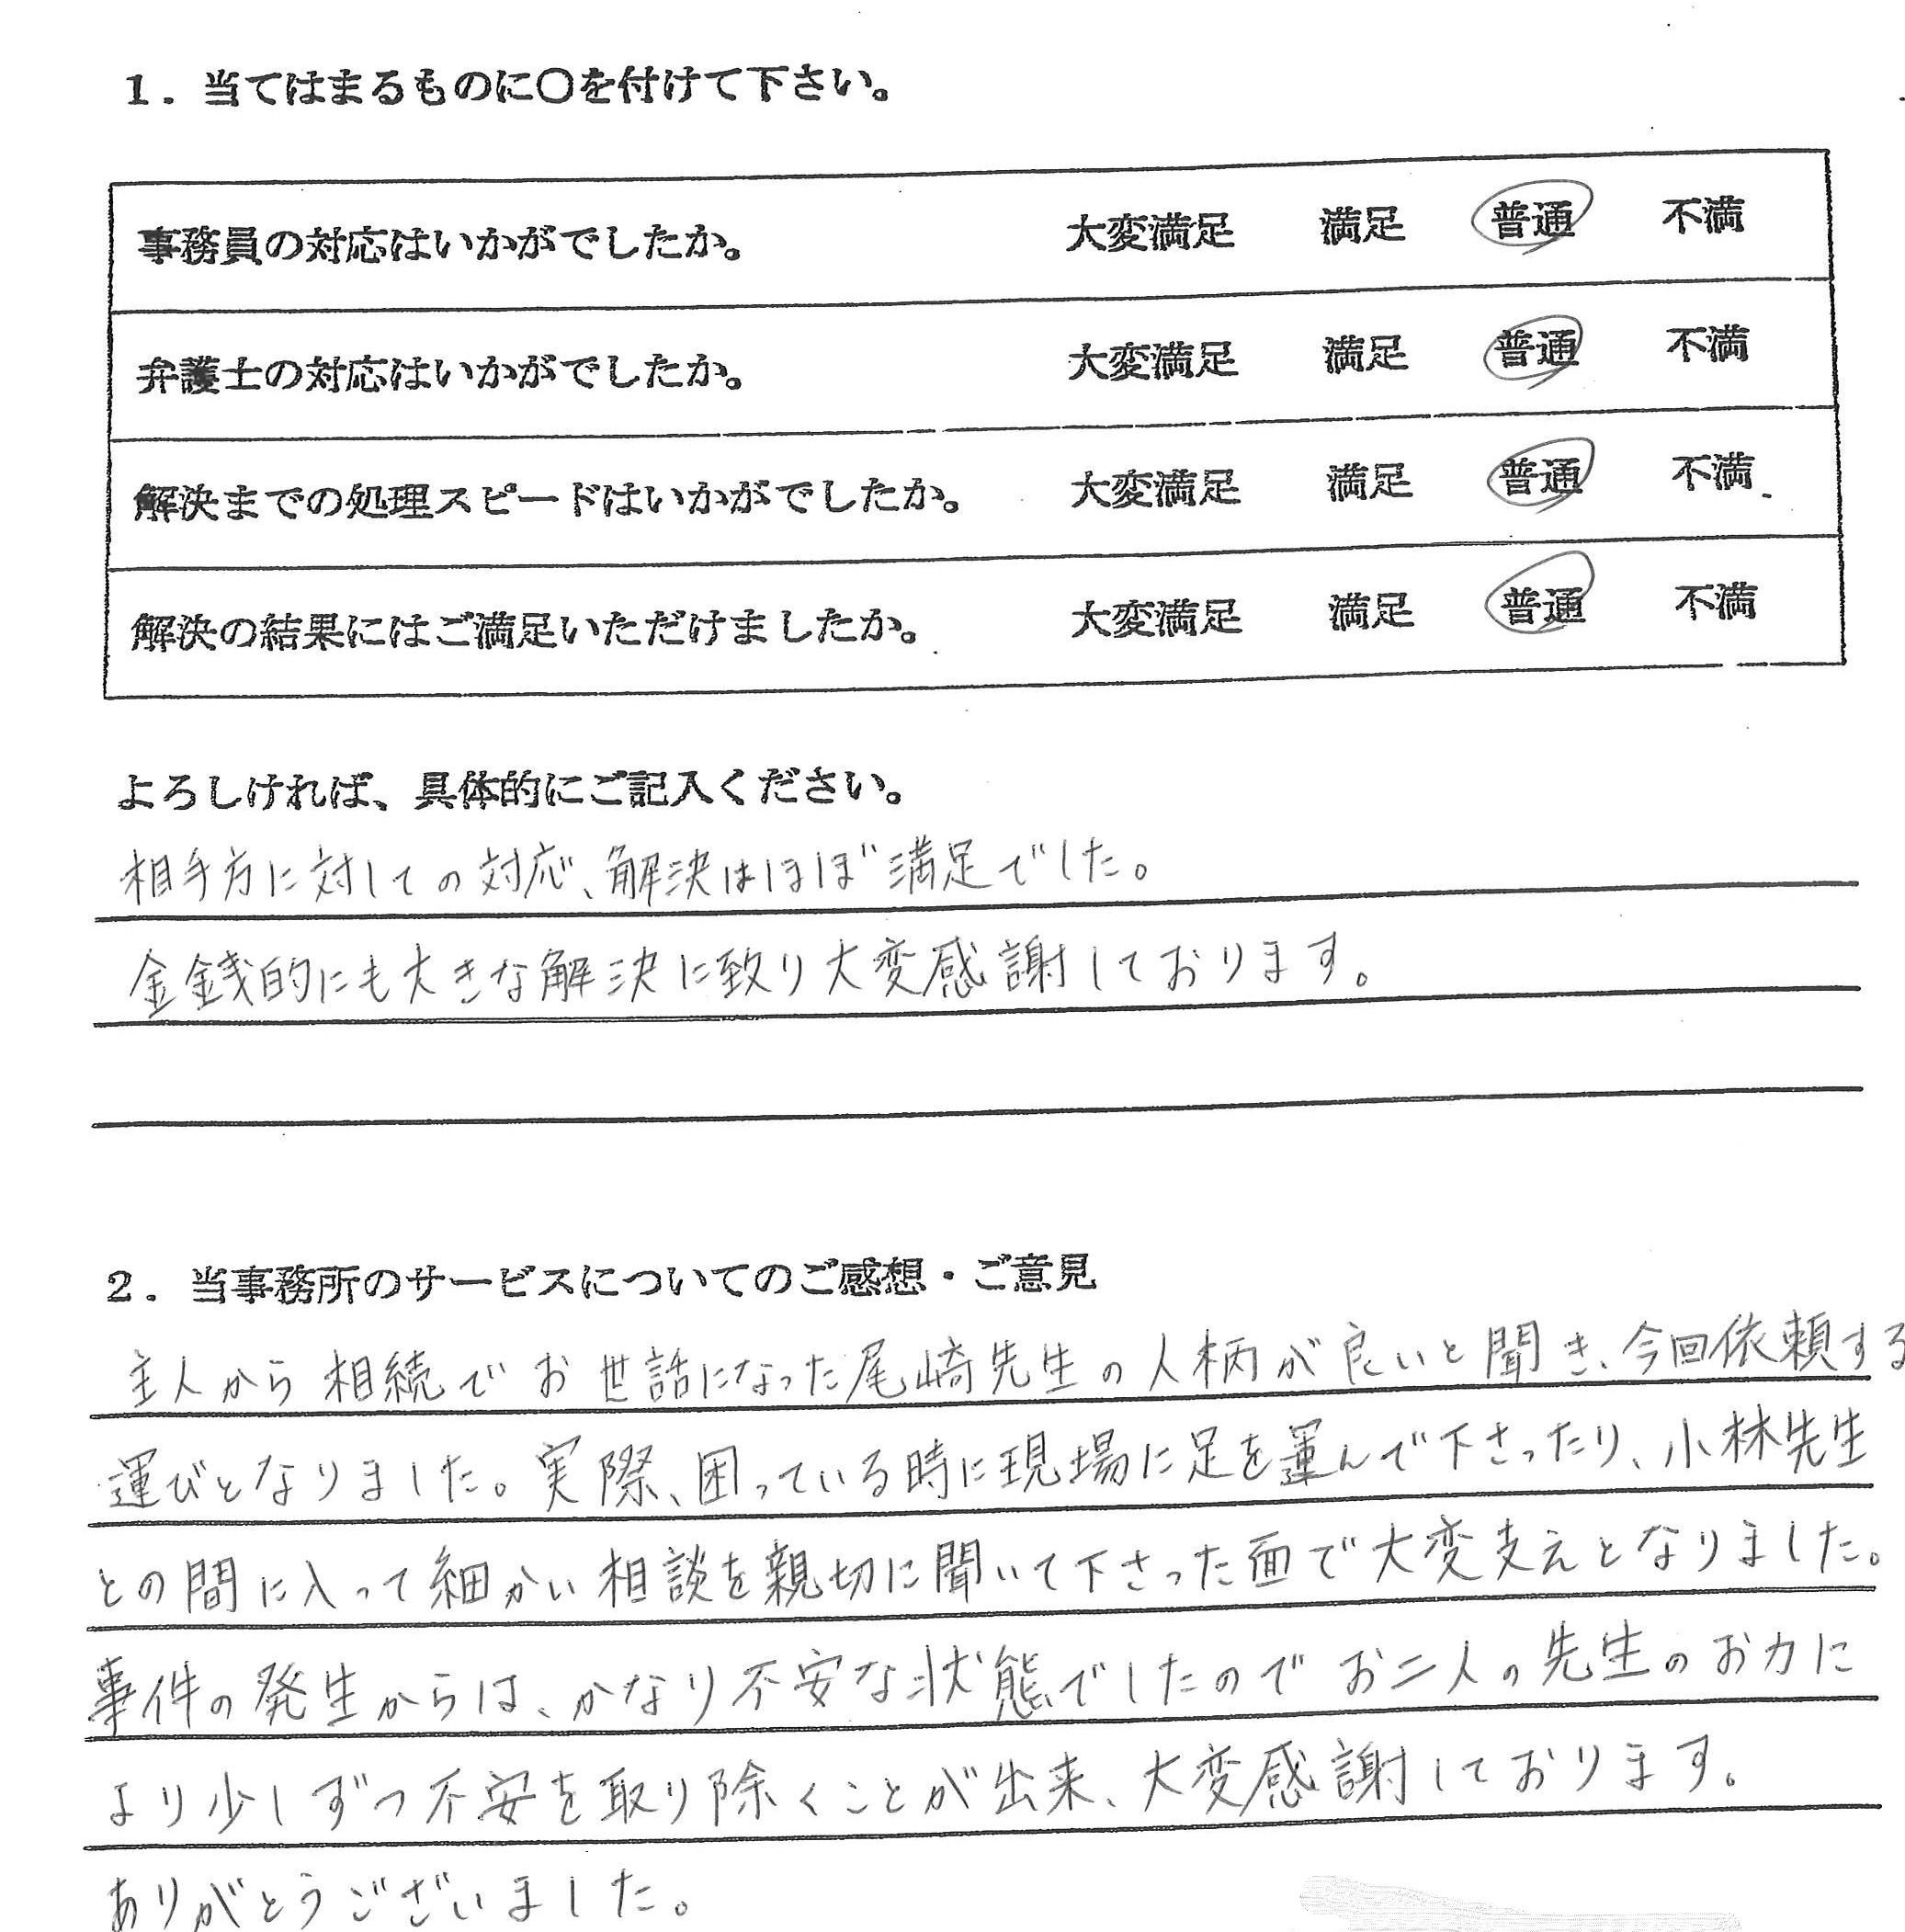 1．当てはまるものに○を付けて下さい。
事務員の対応はいかがでしたか。 大変満足 満足 普通 不満
弁護士の対応はいかがでしたか。 大変満足 満足 普通 不満
解決までの処理スピードはいかがでしたか。 大変満足 満足 普通 不満
解決の結果にはご満足いただけましたか。 大変満足 満足 普通 不満
よろしければ、具体的にご記入ください。
相手方に対しての対応、解決はほぼ満足でした。
金銭的にも大きな解決に致り大変感謝しております。
2．当事務所のサービスについてのご感想・ご意見
主人から相続でお世話になった尾崎先生の人柄が良いと聞き、今回依頼する
運びとなりました。実際、困っている時に現場に足を運んで下さったり、小林先生
との間に入って細かい相談を親切に聞いて下さった面で大変支えとなりました。
事件の発生からは、かなり不安な状態でしたのでお二人の先生のお力に
より少しずつ不安を取り除くことが出来、大変感謝しております。
ありがとうございました。